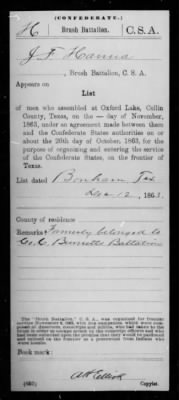 (CONFEDERATE.)
H Brush Battalion. C.S.A.
J F Hanna
, Brush Battalion, C. S. A.
Appears on
List
of men who assembled at Oxford Lake, Collin
County, Texas, on the — day of November,
1863, under an agreement made between them
and the Confederate States authorities on or
about the 20th day of October, 1863, for the
purpose of organizing and entering the service
of the Confederate States, on the frontier of
Texas.
List dated Bonham, Tex
Dec 12, 1863.
County of residence
Remarks Formerly belonged to
Co. C Battalion
The "Brush Battalion," C. S. A., was organized for frontier
service November 6, 1863, with companies, which were composed
of deserters, conscripts and militia, who had taken to the
brush in order to escape arrest by the enrolling officers and who
had been called upon by the Confederate authorities to be pardoned
and placed on the frontier as a protection from Indians who
were raiding.
Book mark:
(650) Copyist.